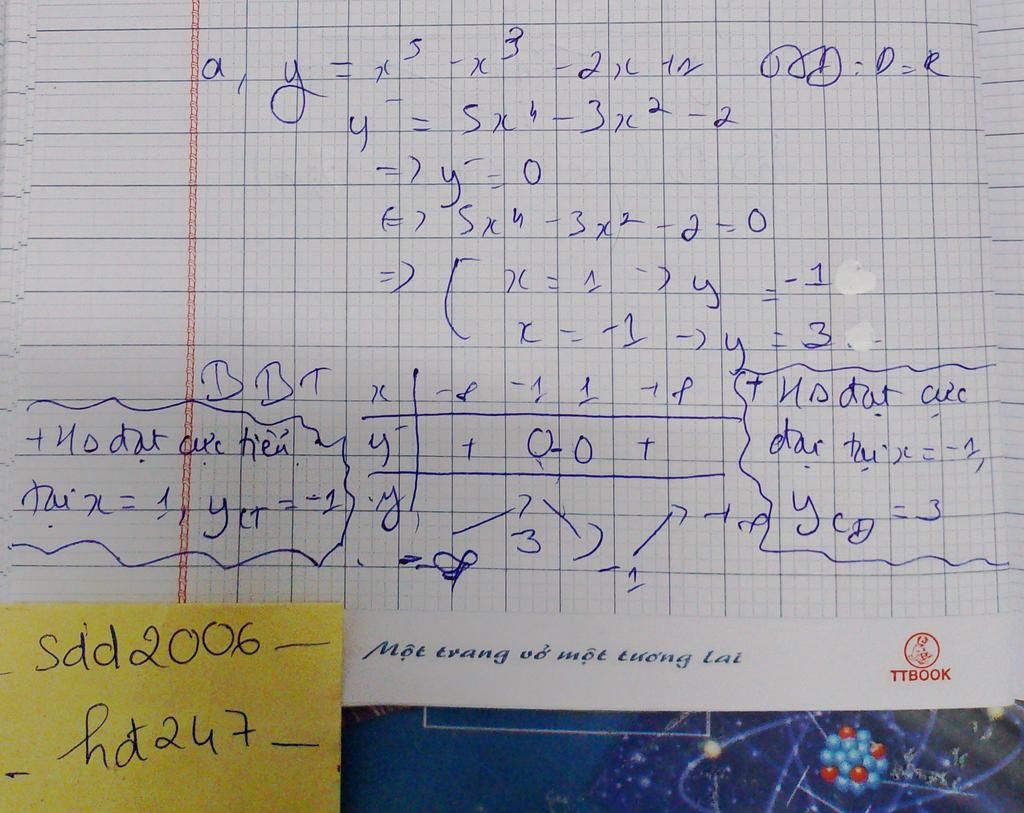 a, y = x⁵ - x³ - 2x + 1 TXĐ: D = R
y' = 5x⁴ - 3x² - 2
=> y' = 0
<=> 5x⁴ - 3x² - 2 = 0
=> [ x = 1 -> y = -1
x = -1 -> y = 3
BBT x | -∞ -1 1 +∞
y' | + 0 - 0 +
y | -∞ 3 -1 +∞
+ HS đạt cực tiểu
tại x = 1, yCT = -1
+ HS đạt cực
đại tại x = -1,
yCĐ = 3
sdd2006 —
- hđ247 —
Một trang vở một tương lai
TTBOOK